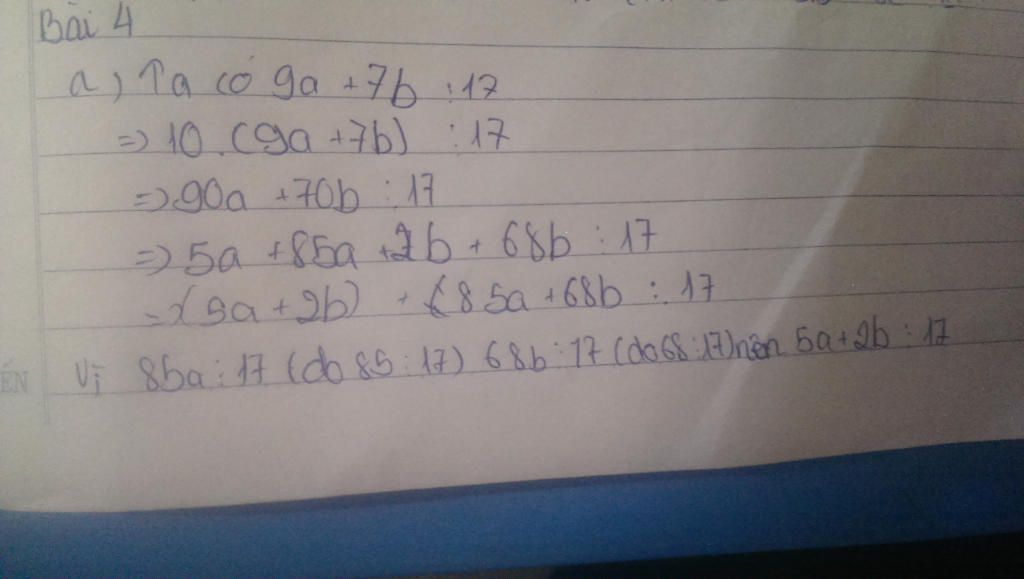 Bài 4
a) Ta có 9a + 7b ⋮ 17
=> 10.(9a + 7b) ⋮ 17
=> 90a + 70b ⋮ 17
=> 5a + 85a + 2b + 68b ⋮ 17
=> (5a + 2b) + (85a + 68b ⋮ 17
Vì 85a ⋮ 17 (do 85 ⋮ 17) 68b ⋮ 17 (do 68 ⋮ 17) nên 5a + 2b ⋮ 17